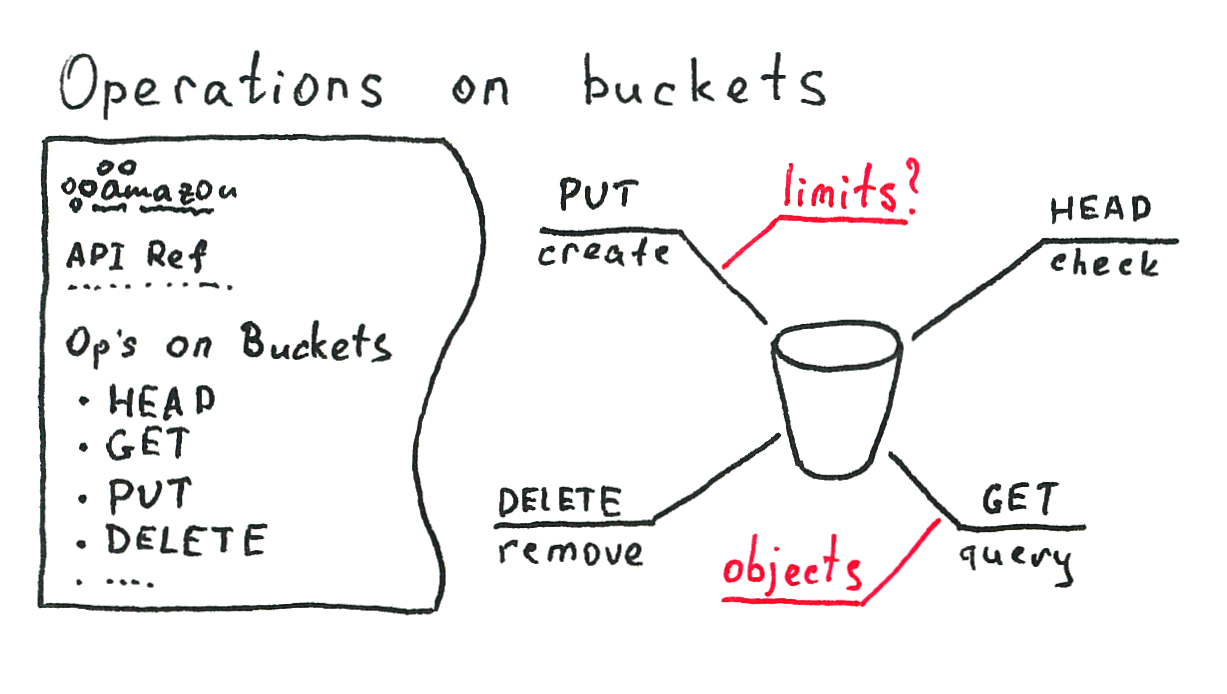 Operations on buckets
amazon
API Ref
Op's on Buckets
• HEAD
• GET
• PUT
• DELETE
• ....
PUT
create
limits?
HEAD
check
DELETE
remove
objects
GET
query